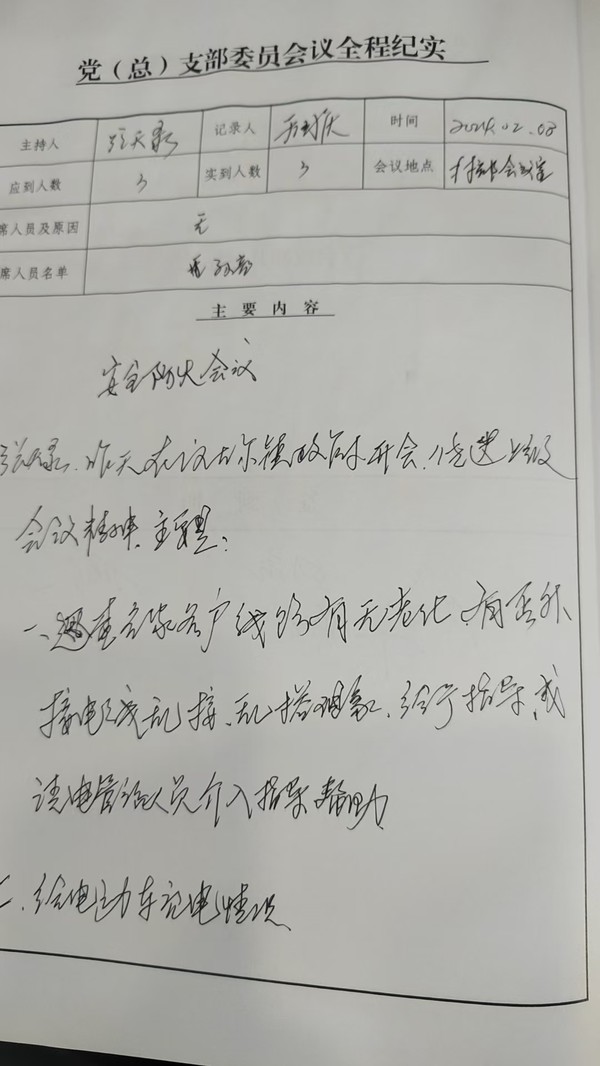 党（总）支部委员会议全程纪实
主持人 记录人 时间 2024.02.03
应到人数 3 实到人数 3 会议地点 村部会议室
席人员及原因 无
席人员名单
主要内容
安全防火会议
昨天在汉古尔镇政府开会，传递上级
会议精神，主要是：
一、巡查各家各户线路有无老化，有否外
接电线乱接、乱搭现象，给予指导，或
请电管站人员介入指导帮助
二、给电动车充电情况